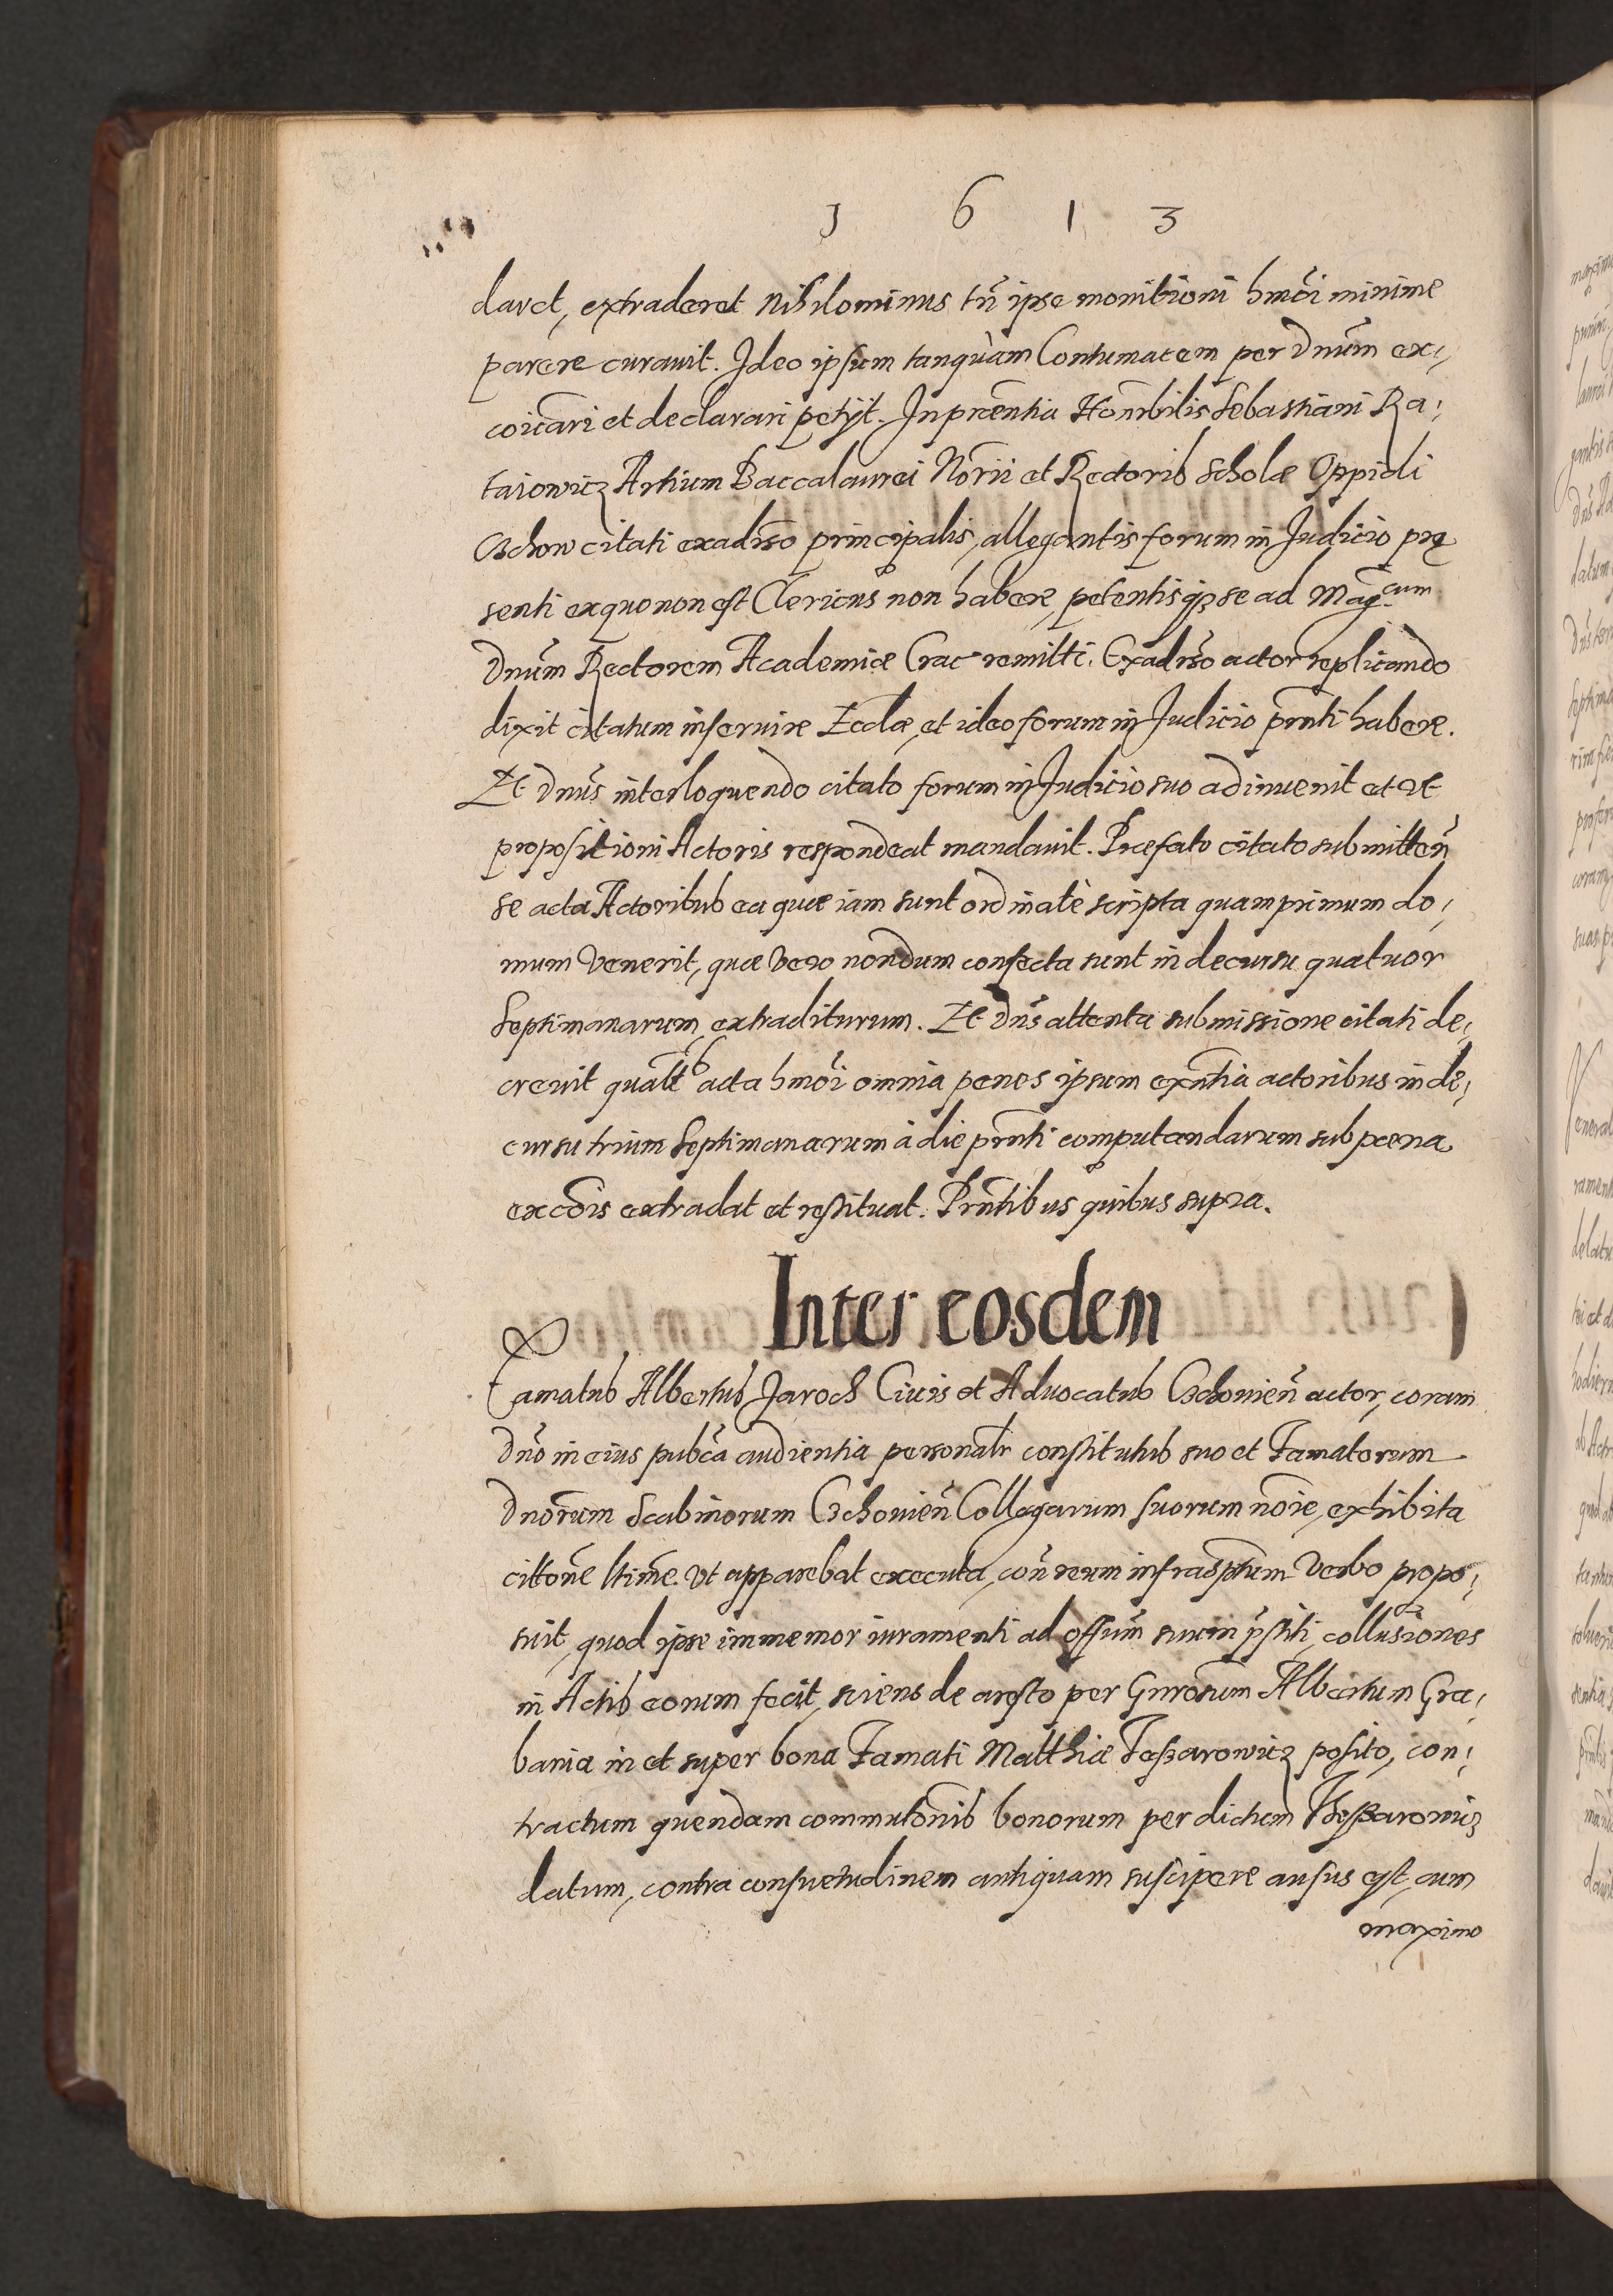 1 6 1 3
daret, extraderet nihilominus tñ ipse monitioni hmõi minime
parere curauit. Ideo ipsum tanquàm Contumacem per Dnũm ex,
coicãri et declarari petijt. In pñtia Honorbilis Sebastiani Ra,
taiowicz Artium Baccalaurei Norii et Rectoris Scholæ Oppidi
Czchow citati exadũso principalis, allegantis forum in Judicio præ
senti ex quo non est Clericus non habere, petentisqz se ad Magcum
Dnũm Rectorem Academiæ Crac remitti. Exadũso actor replicando
dixit citatum inseruire Ecclæ, et ideo forum in Judicio pñti habere.
Et Dnũs interloquendo citato forum in Judicio suo adinuenit et vt
propositioni Actoris respondeat mandauit. Præfato citato submitteñ
se acta Actoribus ea quæ iam sunt ordinatè scripta quamprimum do,
mum venerit, quæ vero nondum confecta sunt in decursu quatuor
Septimanarum extraditurum. Et Dñs attenta submissione citati de,
creuit qualtr acta hmõi omnia penes ipsum exñtia actoribus in de,
cursu trium Septimanarum à die pñti computandarum sub poena
excõis extradat et restituat. Pñtibus quibus supra.
Inter eosdem
Famatus Albertus Jaroch Ciuis et Aduocatus Czchouieñ actor, coram
Dño in eius pubca audientia personalr constitutus suo et Famatorum
Dnõrum Scabinorum Czchouieñ Collegarum suorum noie, exhibita
cittõne ltime. vt apparebat executa, coñ reum infrasptum verbo propo,
suit, quod ipse immemor iuramenti ad offium suum pstiti, collusiones
in Actis eorum fecit, sciens de aresto per Gnrosum Albertum Gra,
bania in et super bona Famati Matthiæ Teszarowicz posito, con,
tractum quendam commutõnis bonorum per dictum Theszarowicz
datum, contra consuetudinem antiquam suscipere ausus est, cum
maximo